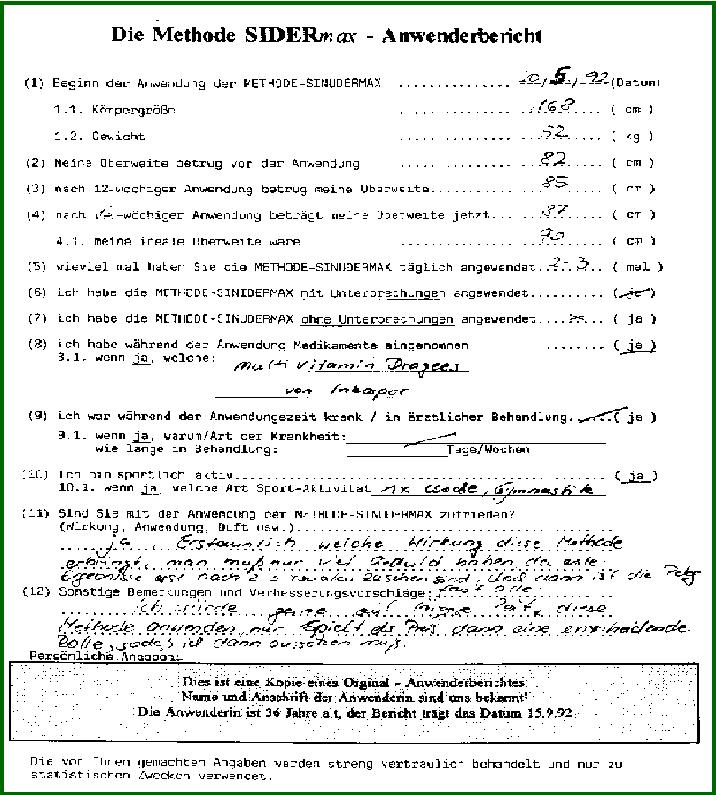 Die Methode SIDERmax - Anwenderbericht
(1) Beginn der Anwendung der METHODE-SINUDERMAX ............... 10/5/92 (Datum)
1.1. Körpergröße ............... 168 ...... ( cm )
1.2. Gewicht ............... 52 ...... ( kg )
(2) Meine Oberweite betrug vor der Anwendung ............... 82 ...... ( cm )
(3) nach 12-wöchiger Anwendung betrug meine Oberweite............... 85 ...... ( cm )
(4) nach -wöchiger Anwendung beträgt meine Oberweite jetzt............ 87 ...... ( cm )
4.1. meine ideale Oberweite wäre ............... 90 ...... ( cm )
(5) wieviel mal haben Sie die METHODE-SINUDERMAX täglich angewendet..2-3.. ( mal )
(6) ich habe die METHODE-SINIDERMAX mit Unterbrechungen angewendet.......... (ja)
(7) ich habe die METHODE-SINUDERMAX ohne Unterbrechungen angewendet.......... ( ja )
(8) ich habe während der Anwendung Medikamente eingenommen ........ ( ja )
wenn ja, welche: Multi Vitamin Dragees
von
(9) ich war während der Anwendungszeit krank / in ärztlicher Behandlung....... ( ja )
9.1. wenn ja, warum/Art der Krankheit:
wie lange in Behandlung: Tage/Wochen
(10) Ich bin sportlich aktiv.................... ( ja )
10.1. wenn ja, welche Art Sport-Aktivität Gymnastik
(11) Sind Sie mit der Anwendung der METHODE-SINUDERMAX zufrieden?
(Wirkung, Anwendung, Duft usw.)....................
ja, Erstaunlich welche Wirkung diese Methode
man muß nur viel Geduld haben da erste
Ergebnisse erst nach 2-3 Monaten zu sehen sind. Und dann ist die
(12) Sonstige Bemerkungen und Verbesserungsvorschläge:
Ich würde gerne auf diese
Methode anwenden, nur spielt der Preis dann eine entscheidende
Rolle,
Persönliche Angaben:
Dies ist eine Kopie eines Orginal - Anwenderberichtes
Name und Anschrift der Anwenderin sind uns bekannt!
Die Anwenderin ist 36 Jahre alt, der Bericht trägt das Datum 15.9.92
Die von Ihnen gemachten Angaben werden streng vertraulich behandelt und nur zu
statistischen Zwecken verwendet.